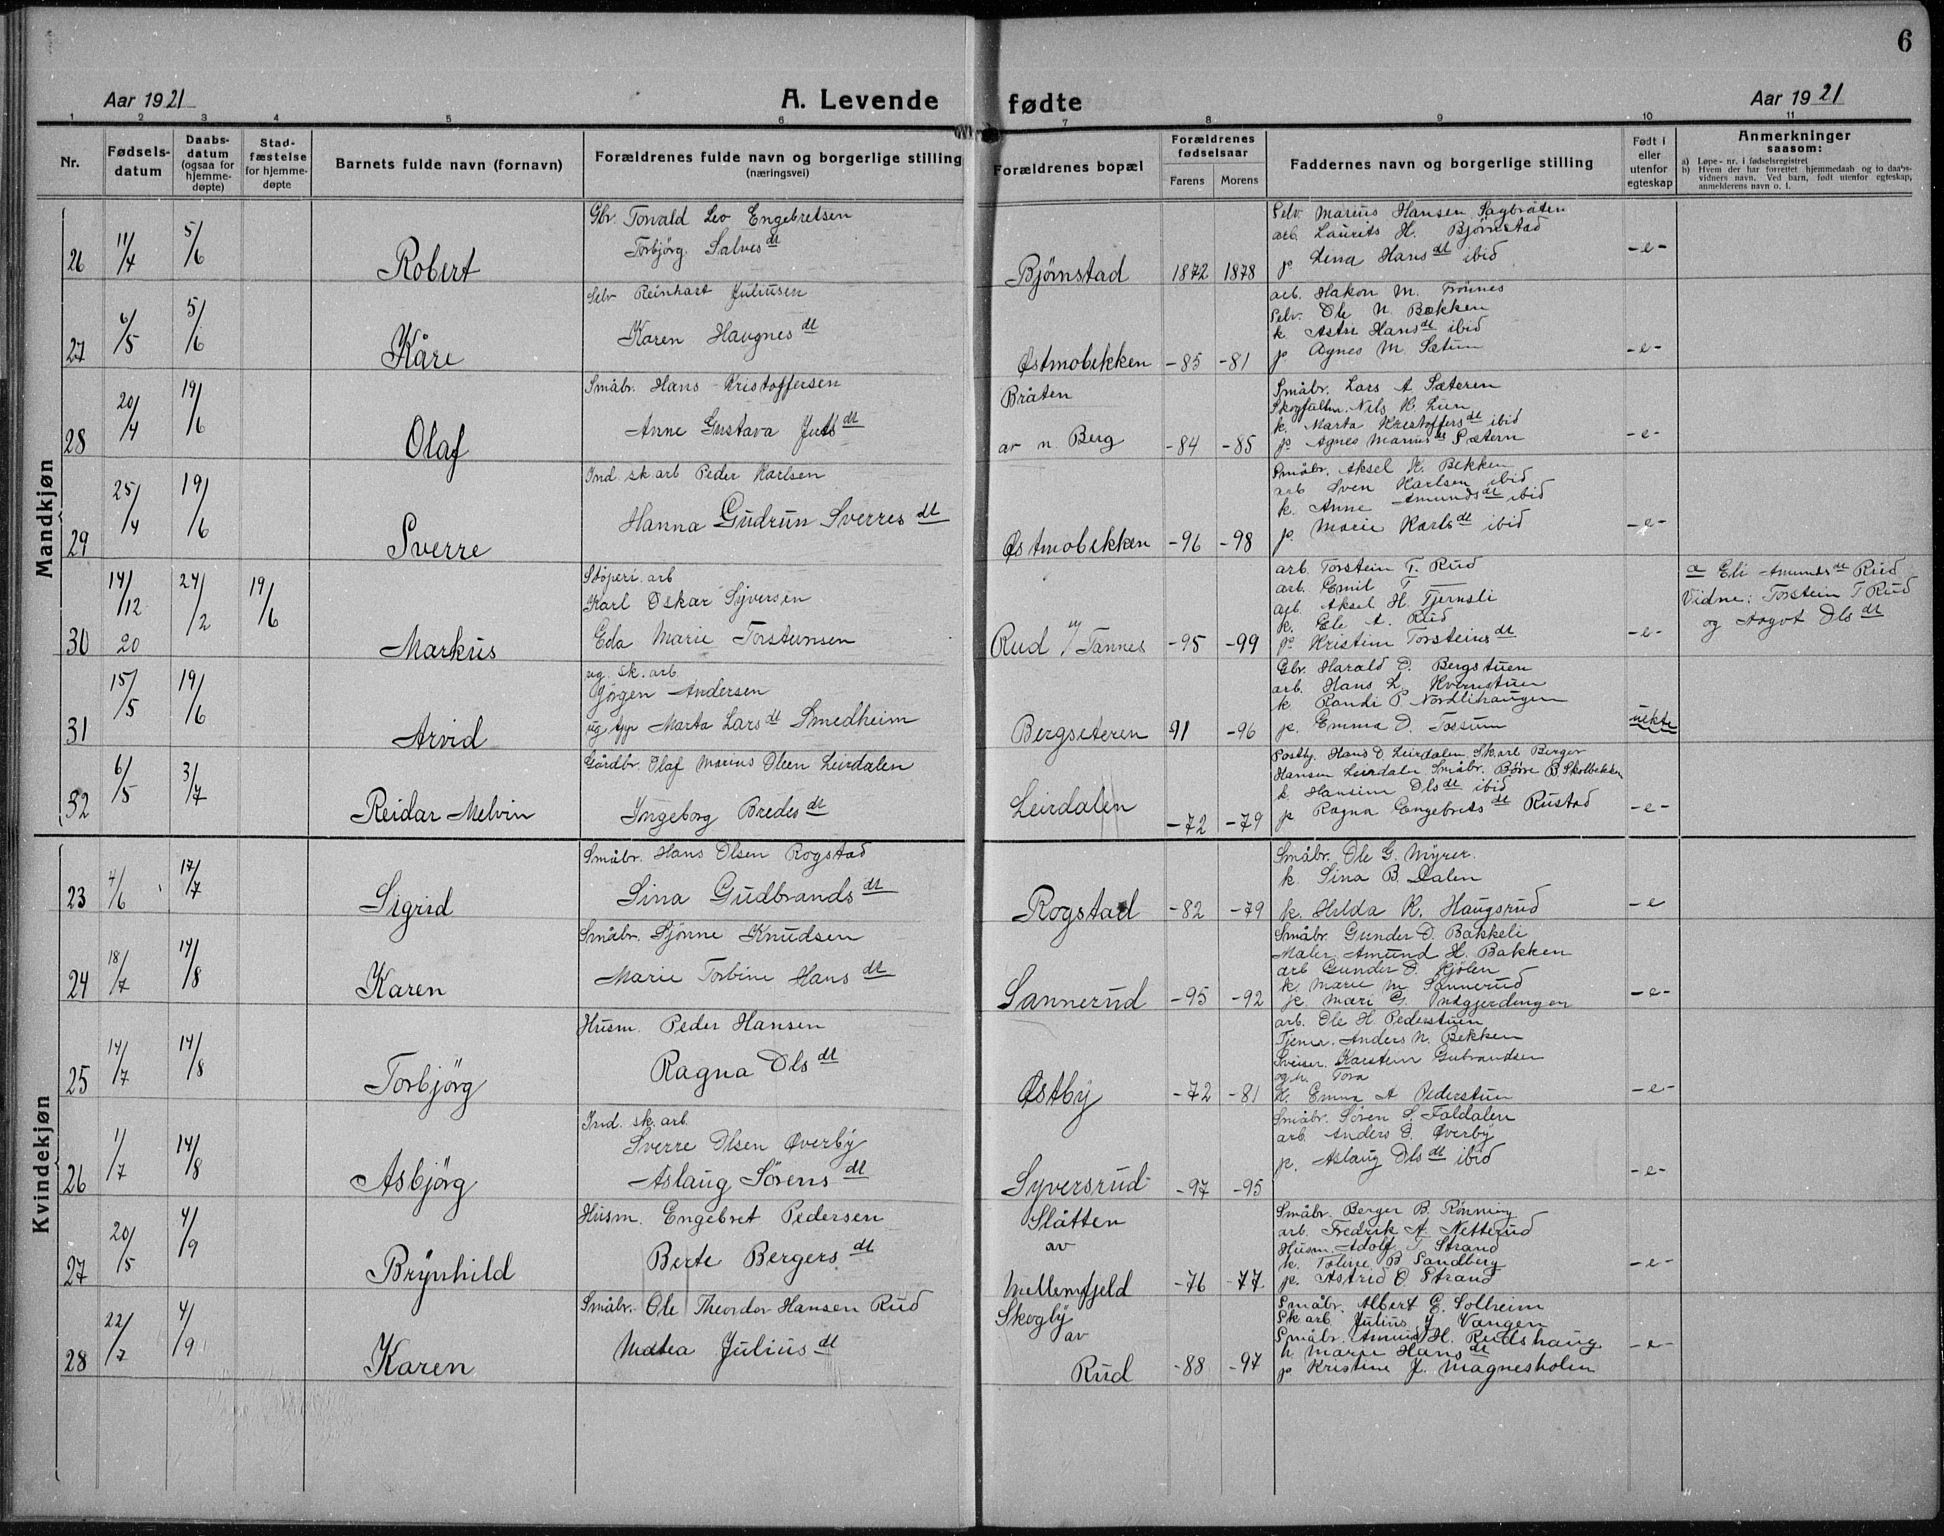 6
Aar 1921
A. Levende fødte
Aar 1921
1 2 3 4 5 6 7 8 9 10 11
Nr.
Fødsels-datum
Daabs-datum (ogsaa for hjemme-døpte)
Stad-fæstelse for hjemme-døpte
Barnets fulde navn (fornavn)
Forældrenes fulde navn og borgerlige stilling (næringsvei)
Forældrenes bopæl
Forældrenes fødselsaar
Farens Morens
Faddernes navn og borgerlige stilling
Født i eller utenfor egteskap
Anmerkninger saasom:
a) Løpe-nr. i fødselsregistret
b) Hvem der har forrettet hjemmedaab og to daabs-vidners navn. Ved barn, født utenfor egteskap, anmelderens navn o. l.
Mandkjøn
26 11/4 5/6 Robert
Gbr. Torvald Leo Engebretsen
Torbjørg Salvesdt
Bjørnstad 1872 1878
Selv. Marius Hansen Sagbråten
arb. Laurits H. Bjørnstad
p. Lena Hansdt ibid
-e-
27 6/5 5/6 Kåre
Selv Reinhart Juliusen
Karen Haugnesdt
Østmobekken -85 -81
arb. Hakon M. Trönnes
Selv. Ole N. Bakken
k Astri Hansdt ibid
p Agnes M. Sætum
-e-
28 20/4 19/6 Olaf
Småbr. Hans Kristoffersen
Anne Gustava Juls dt
Bråten
av n Berg -84 -85
Småbr. Lars A Sæteren
Skogfultm. Nils K. Lien
k. Marta Kristoffersdt ibid
p. Agnes Mariusdt Sætern
-e-
29 25/4 19/6 Sverre
Ind sk arb Peder Karlsen
Hanna Gudrun Sverresdt
Østmobekken -96 -98
Småbr. Aksel K. Bekken
arb Sven Karlsen ibid
k. Anne Amundsdt ibid
p. Marie Karlsdt ibid
-e-
30 14/12 20 24/2 19/6 Markus
Støperi. arb
Karl Oskar Syversen
Eda Marie Torsteinsen
Rud Tannes -95 -99
arb. Torstein T. Rud
arb. Emil T
arb. Aksel H. Tjernsli
k. Ele A. Rud
p. Kristine Torsteinsdt
-e-
a Eli Amundsdt Rud
Vidne: Torstein T Rud
og Aagot Olsdt
31 15/5 19/6 Arvid
ug. sk. arb.
Jörgen Andersen
ug Marta Larsdt Smedheim
Bergseteren 91 -96
Gbr. Harald O. Bergstuen
arb. Hans L. Kvernstuen
k Randi P. Nordlihaugen
p. Emma O. Tossum
uekte
32 6/5 3/7 Reidar Melvin
Gårdbr. Olaf Marius Olsen Leirdalen
Ingeborg Bredesdt
Leirdalen -72 -79
Postby. Hans O Leirdalen, Sk.arb Berger
Hansen Leirdalen Småbr. Børre B Skolbekken
k. Hansine Olsdt ibid
p Ragna Engebretsdt Rustad
-e-
Kvindekjøn
23 4/6 17/7 Sigrid
Småbr. Hans Olsen Rogstad
Sina Gudbrandsdt
Rogstad -82 -79
Småbr. Ole G. Myrer.
k. Sina B. Dalen
k. Hilda K. Haugsrud
-e
24 18/7 14/8 Karen
Småbr. Sjönne Knudsen
Marie Torbine Hansdt
Sannerud -95 -92
Småbr. Gunder O. Bakkeli
Maler Amund H. Bakken
arb Gunder O. Kjölen
k. Marie M Sannerud
p. Mari G. Indgjerdingen
-e-
25 14/7 14/8 Torbjörg
Husm. Peder Hansen
Ragna Olsdt
Østby -72 -81
arb. Ole H Pederstuen
Tjener. Anders N. Bekken
Sveiser. Karsten Gubrandsen
og h. Tora
k. Emma A Pederstuen
-e-
26 1/7 14/8 Asbjörg
Ind. sk. arb.
Sverre Olsen Øverby
Aslaug Sørensdt
Syversrud -97 -95
Småbr. Søren S. Faldalen
arb. Anders O. Øverby
p. Aslaug Olsdt ibid
-e-
27 20/5 4/9 Brynhild
Husm. Engebret Pedersen
Berte Bergersdt
Slåtten
av
Mellemfjeld -76 -77
Småbr. Berger B. Rønning
arb. Fredrik A. Netterud
Husm. Adolf T. Strand
k. Toline B Sandberg
p. Astrid O Strand
-e-
28 22/7 4/9 Karen
Småbr. Ole Theordor Hansen Rud
Matea Juliusdt
Skogby
av
Rud -88 -97
Småbr. Albert E. Solheim
Sk arb Julius J Vangen
Småbr. Amund H. Rudshaug
h Marie Hansdt
p Kristine J. Magnesholen
-e-